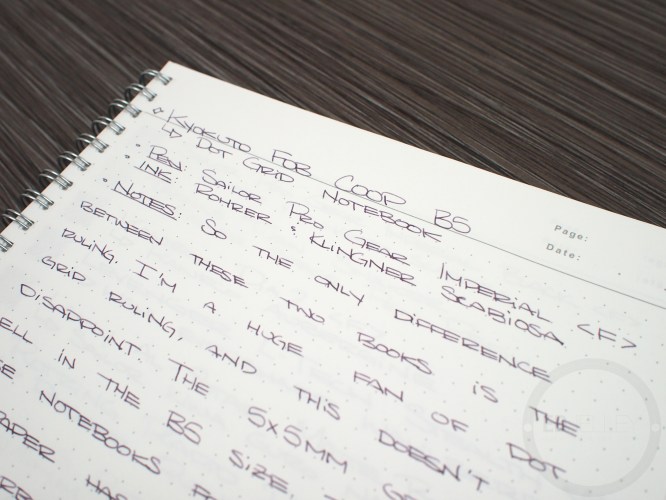 Kyokuto FOB COOP B5
↳ DOT GRID NOTEBOOK
Page:
Date:
• PEN: SAILOR PRO GEAR IMPERIAL <F>
• INK: ROHRER & KLINGNER SCABIOSA
• NOTES: SO THE ONLY DIFFERENCE
BETWEEN THESE TWO BOOKS IS THE
RULING. I'M A HUGE FAN OF DOT
GRID RULING, AND THIS DOESN'T
DISAPPOINT. THE 5x5MM
IN THE B5 SIZE.
NOTEBOOKS
HAS